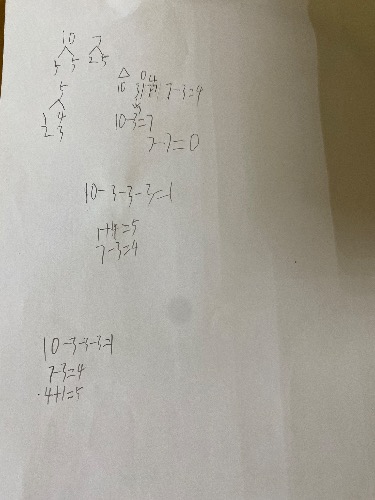 10 7
5 5 2 5
5
1 4
2 3
10 7-3=4
10-3=7
7-7=0
10-3-3-3=1
1+4=5
7-3=4
10-3-3-3=1
7-3=4
4+1=5